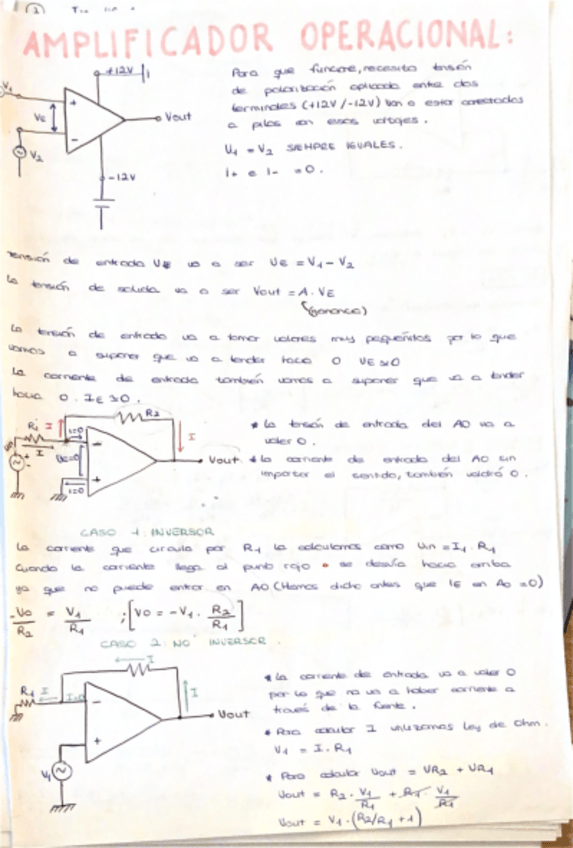 AMPLIFICADOR OPERACIONAL:
+12V
V1
VE
+
-
Vout
V2
-12V
Para que funcione, necesito tensión
de polarización aplicada entre dos
terminales (+12V/-12V) van a estar conectadas
a pilas con esos voltajes.
V1 = V2 SIEMPRE IGUALES.
I+ e I- = 0.
Tensión de entrada VE va a ser VE = V1 - V2
La tensión de salida va a ser Vout = A · VE
(ganancia)
La tensión de entrada va a tomar valores muy pequeñitos por lo que
vamos a suponer que va a tender hacia 0 VE≈0
La corriente de entrada también vamos a suponer que va a tender
hacia 0. IE≈0.
R1
I
I
i=0
R2
I
VE=0
i=0
-
+
Vout
* La tensión de entrada del AO va a
valer 0.
* La corriente de entrada del AO sin
importar el sentido, también valdrá 0.
CASO 1: INVERSOR
La corriente que circula por R1 la calculamos como Vin = I1 · R1
Cuando la corriente llega al punto rojo • se desvía hacia arriba
ya que no puede entrar en AO (Hemos dicho antes que IE en AO = 0)
-Vo/R2 = V1/R1 ; [Vo = -V1 · R2/R1]
CASO 2: NO INVERSOR.
I
R1
I
I=0
I
-
+
Vout
V1
* La corriente de entrada va a valer 0
por lo que no va a haber corriente a
través de la fuente.
* Para calcular I utilizamos Ley de Ohm.
V1 = I · R1
* Para calcular Vout = VR2 + VR1
Vout = R2 · V1/R1 + R1 · V1/R1
Vout = V1 · (R2/R1 + 1)